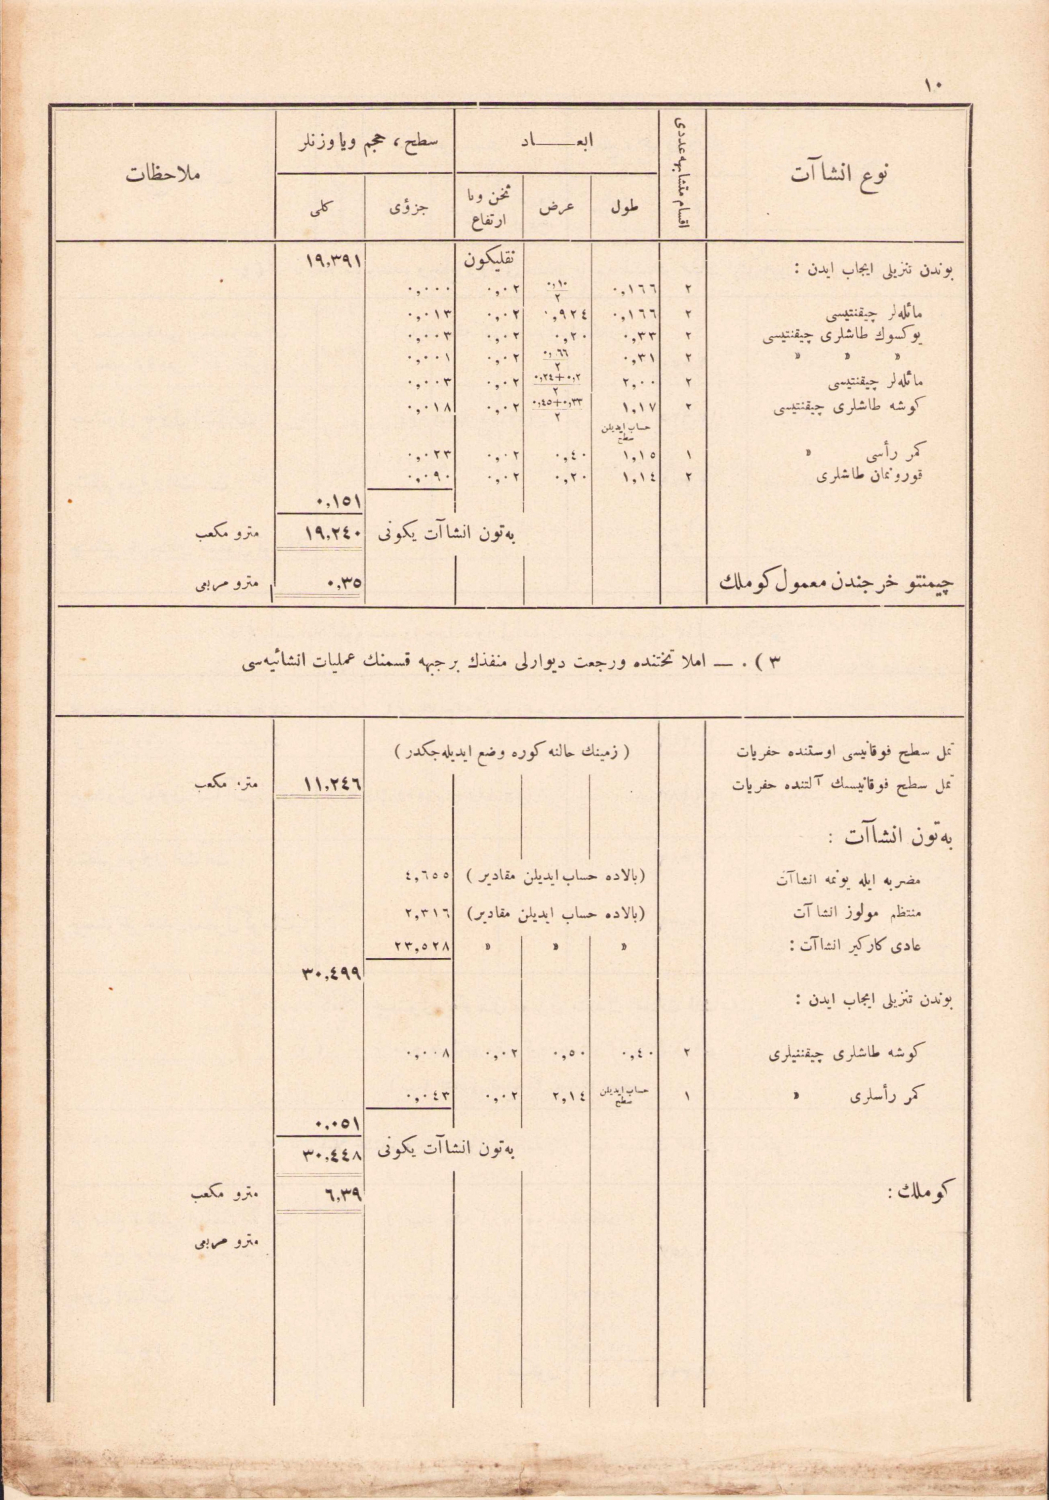 ١٠
نوع انشاآت | اقسام متشابهه عددی | ابعـــاد | سطح ، حجم ویا وزنلر | ملاحظات
طول | عرض | ثخن ویا ارتفاع | جزؤی | كلی
نقلیكون ١٩,٣٩١
بوندن تنزیلی ایجاب ایدن :
٢ ٠,١٦٦ ٠,١٠/٢ ٠,٠٢ ٠,٠٠٠
مائله‌لر چیقنتیسی ٢ ٠,١٦٦ ٠,٩٢٤ ٠,٠٢ ٠,٠١٣
یوكسوك طاشلری چیقنتیسی ٢ ٠,٣٣ ٠,٢٠ ٠,٠٢ ٠,٠٠٣
» » » ٢ ٠,٣١ ٠,٦٦/٢ ٠,٠٢ ٠,٠٠١
مائله‌لر چیقنتیسی ٢ ٢,٠٠ ٠,٢+٠,٢٤/٢ ٠,٠٢ ٠,٠٠٣
كوشه طاشلری چیقنتیسی ٢ ١,١٧ ٠,٣٣+٠,٤٥/٢ ٠,٠٢ ٠,٠١٨
حساب ایدیلن سطح
كمر رأسی » ١ ١,١٥ ٠,٤٠ ٠,٠٢ ٠,٠٢٣
قورونمان طاشلری ٢ ١,١٤ ٠,٢٠ ٠,٠٢ ٠,٠٩٠
٠,١٥١
به‌تون انشاآت یكونی ١٩,٢٤٠ مترو مكعب
چیمنتو خرجندن معمول كوملك ٠,٣٥ مترو مربعی
٣ ) ٠ — املا تختنده ورجعت دیوارلی منفذك برجبهه قسمنك عملیات انشائیه‌سی
تمل سطح فوقانیسی اوستنده حفریات ( زمینك حالنه كوره وضع ایدیله‌جكدر )
تمل سطح فوقانیسنك آلتنده حفریات ١١,٢٤٦ مترو مكعب
به‌تون انشاآت :
مضربه ایله یونمه انشاآت (بالاده حساب ایدیلن مقادیر ) ٤,٦٥٥
منتظم مولوز انشاآت (بالاده حساب ایدیلن مقادیر) ٢,٣١٦
عادی كارگیر انشاآت : » » » ٢٣,٥٢٨
٣٠,٤٩٩
بوندن تنزیلی ایجاب ایدن :
كوشه طاشلری چیقنتیلری ٢ ٠,٤٠ ٠,٥٠ ٠,٠٢ ٠,٠٠٨
كمر رأسلری » ١ حساب ایدیلن سطح ٢,١٤ ٠,٠٢ ٠,٠٤٣
٠,٠٥١
به‌تون انشاآت یكونی ٣٠,٤٤٨
كوملك : ٦,٣٩ مترو مكعب
مترو مربعی